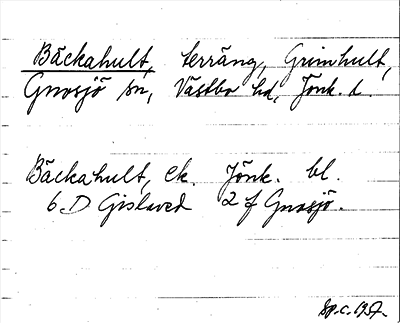 Bäckahult, terräng, Grimhult,
Gnosjö sn, Västbo hd, Jönk. l.
Bäckahult, ek. Jönk. bl.
6 D Gislaved 2 f Gnosjö.